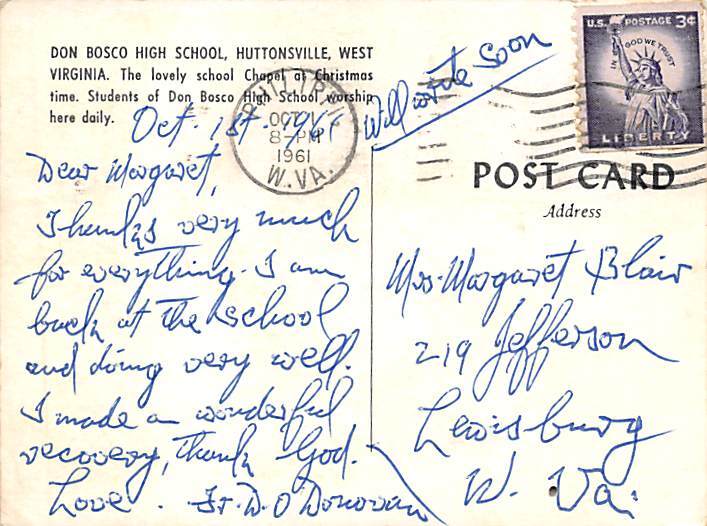 DON BOSCO HIGH SCHOOL, HUTTONSVILLE, WEST
VIRGINIA. The lovely school Chapel at Christmas
time. Students of Don Bosco High School worship
here daily.
Will write soon
Oct. 1st. 1961
Dear Margaret,
Thanks very much
for everything. I am
back at the school
and doing very well.
I made a wonderful
recovery, thank God.
Love. Fr. D. O'Donovan
PHILIPPI
OCT
8-PM
1961
W.VA.
U.S. POSTAGE 3¢
IN GOD WE TRUST
LIBERTY
POST CARD
Address
Mrs. Margaret Blair
219 Jefferson
Lewisburg
W. Va.